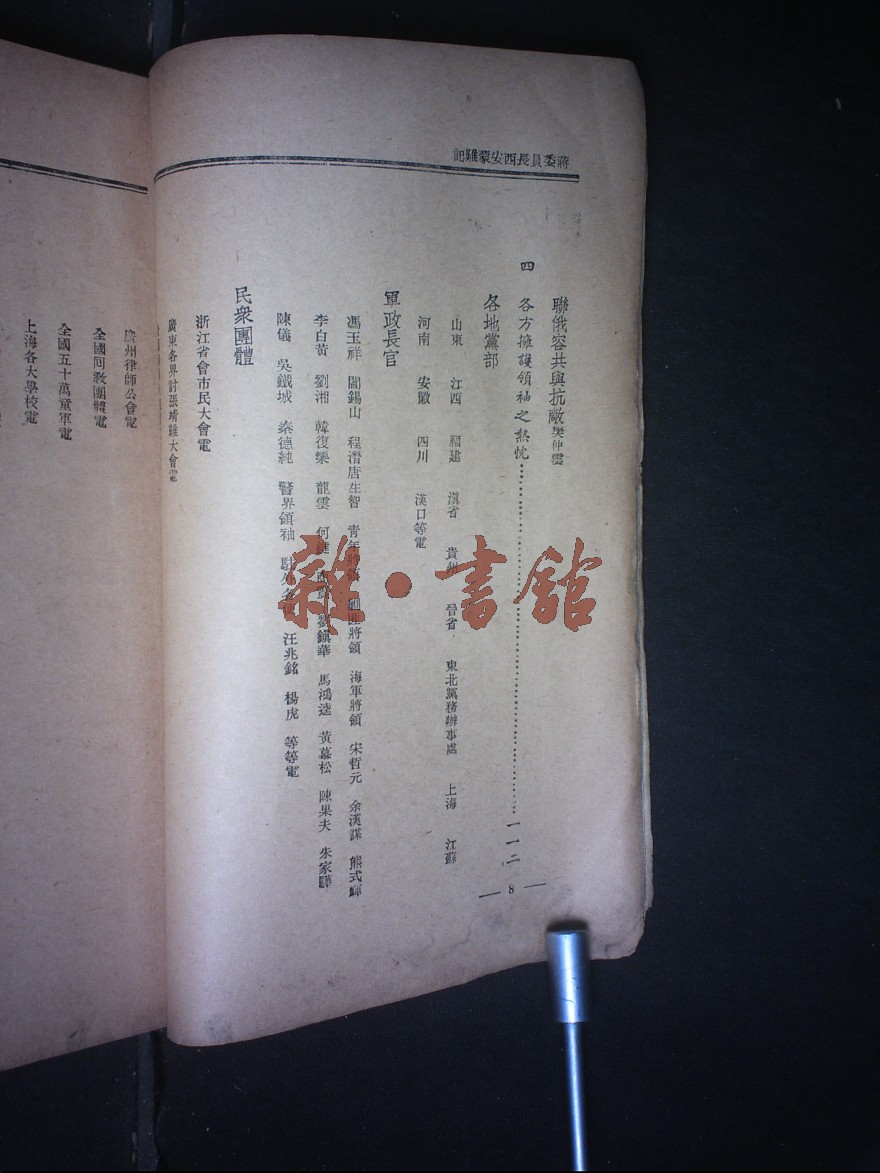 蔣委員長西安蒙難記
聯俄容共與抗敵 樊仲雲
四 各方擁護領袖之熱忱……一一二
各地黨部
山東 江西 福建 滇省 貴州 晉省 東北黨務辦事處 上海 江蘇
河南 安徽 四川 漢口等電
軍政長官
馮玉祥 閻錫山 程潛唐生智 青年將領 將領 海軍將領 宋哲元 余漢謀 熊式輝
李白黃 劉湘 韓復榘 龍雲 何鍵 劉鎮華 馬鴻逵 黃慕松 陳果夫 朱家驊
陳儀 吳鐵城 秦德純 警界領袖 駐外各使 汪兆銘 楊虎 等等電
民衆團體
浙江省會市民大會電
廣東各界討張靖難大會電
— 8 —
廣州律師公會電
全國回教團體電
全國五十萬童軍電
上海各大學校電
雜·書館